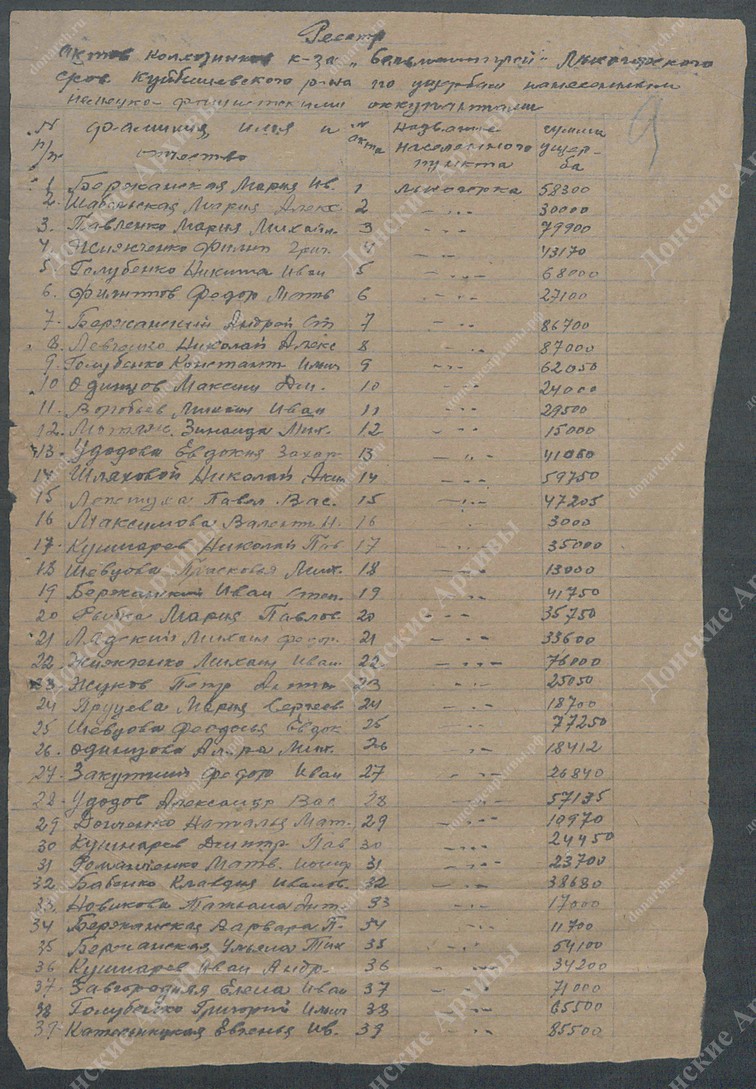 Реестр
Актов колхозников к-за "Большой Луг" Лысогорского
с/сов Куйбышевского р-на по ущербам нанесенным
немецко-фашистскими оккупантами
N п/п фамилия, имя и отчество N акта название населенного пункта сумма ущерба
1 Бержанская Мария Ив. 1 Лысогорка 58300
2. Мария Алекс. 2 - " - 30000
3. Павленко Мария Михайл. 3 - " - 79900
4. Филип Григ. 4 - " - 43170
5 Голубенко Никита Иван 5 - " - 68000
6. Филиппов Федор Матв 6 - " - 27100
7. Бержанский Андрей Ст 7 - " - 86700
8. Левченко Николай Алекс 8 - " - 87000
9. Голубенко Констант. 9 - " - 62050
10 Одинцов Максим Дм. 10 - " - 24000
11. Воробьев Михаил Иван 11 - " - 29500
12. Зинаида Мих. 12 - " - 15000
13. Удодова Евдокия Захар. 13 - " - 41060
14 Шляховой Николай Аким 14 - " - 59750
15 Павел Вас. 15 - " - 47205
16 Максимова Валент. Н. 16 3000
17. Кушнарев Николай Пав 17 - " - 35000
18 Шевцова Прасковья Мих. 18 - " - 13000
19 Бержанский Иван Степ. 19 - " - 41750
20 Мария Павлов. 20 - " - 35750
21 Лядский Михаил Федор. 21 - " - 33600
22. Михаил Иван. 22 - " - 76000
23. Жуков Петр 23 - " - 25050
24 Мария Сергеев 24 - " - 18700
25 Шевцова Феодосья Евдок 25 - " - 77250
26. Одинцова Мих. 26 - " - 18412
27. Закутний Федор Иван 27 - " - 26840
28. Удодов Александр Вас 28 - " - 57135
29 Наталья Мат. 29 - " - 10970
30 Кушнарев Дмитр Пав 30 - " - 24450
31 Романченко Матв. 31 - " - 23700
32. Бабенко Клавдия Иванов. 32 - " - 38680
33. Новикова Татьяна Дмит. 33 - " - 17000
34 Бержанская Варвара П. 34 - " - 11700
35 Бержанская Ульяна Тих 35 - " - 54100
36 Кушнарев Иван Андр. 36 - " - 34200
37. Завгородняя Елена Иван 37 - " - 71000
38 Голубенко Григорий 38 - " - 65500
39 Евгенья Ив. 39 - " - 85500
Донские Архивы
donarch.ru
донскиеархивы.рф